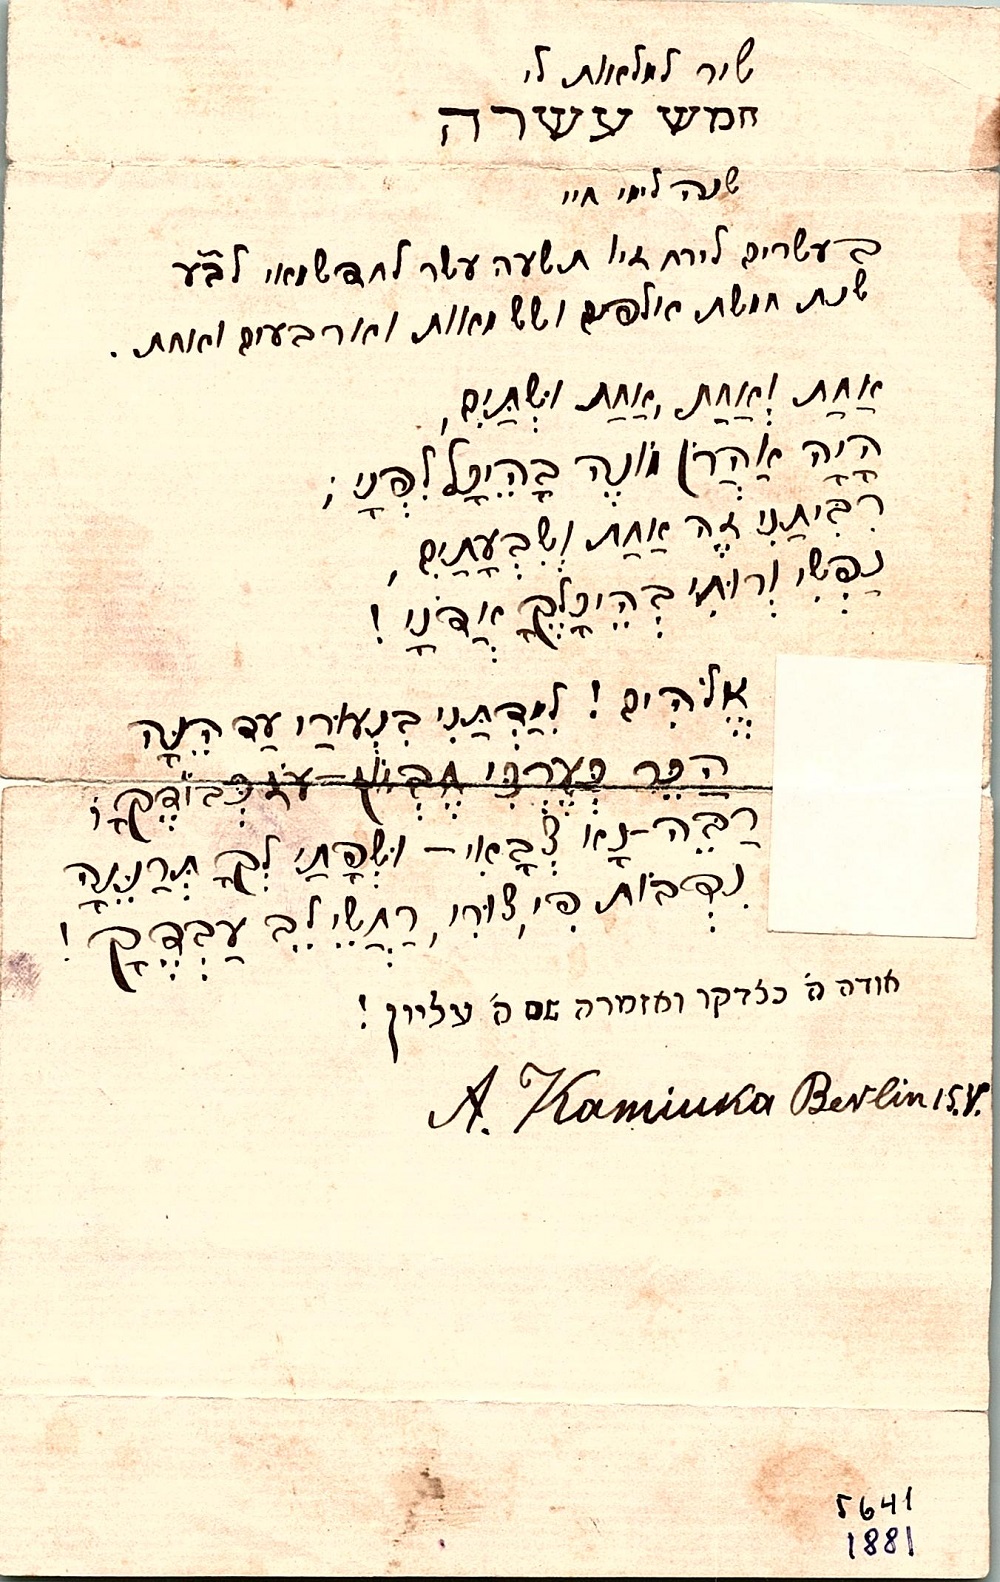 שיר למלאות לי
חמש עשרה
שנה לימי חיי
בעשרים לירח זיו תשעה עשר לחדש מאי לב״ע
שנת חמשת אלפים ושש מאות וארבעים ואחת.
אַחַת וְאַחַת, אַחַת וּשְׁתַּיִם,
הָיָה אַהֲרֹן מוֹנֶה בָּהֵיכָל לִפְנָי;
רִבִּיתַנִי זֶה אַחַת וְשִׁבְעָתַיִם,
נַפְשִׁי וְרוּחִי בְּהֵיכָלֶךָ אֲדֹנָי!
אֱלֹהִים! לִמַּדְתַּנִי בִנְעוּרַי עַד הֵנָּה
רַבֵּה־נָא צְבָאִי — וּשְׂפָתַי לְךָ תְּרַנֵּנָּה
נִדְבוֹת פִּי, צוּרִי, רַחֲשֵׁי לֵב עַבְדֶּךָ!
אודה ה׳ כצדקו ואזמרה שם ה׳ עליון!
A. Kaminka Berlin 15.V.
5641
1881